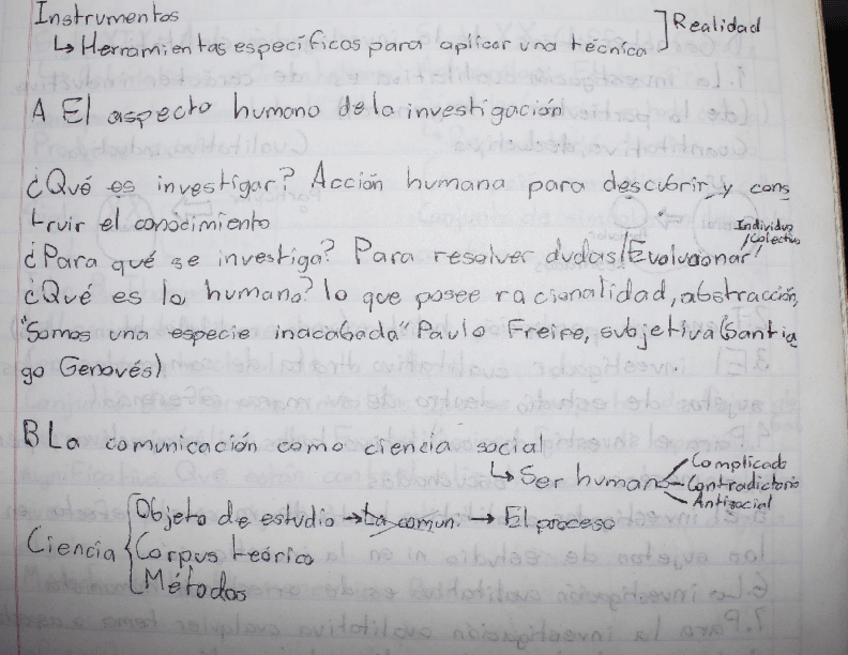 Instrumentos
↳ Herramientas específicos para aplicar una técnica ] Realidad
A El aspecto humano de la investigación
¿Qué es investigar? Acción humana para descubrir y cons
truir el conocimiento
Individuo
/Colectivo
¿Para qué se investiga? Para resolver dudas/Evolucionar/
¿Qué es lo humano? lo que posee racionalidad, abstracción,
"Somos una especie inacabada" Paulo Freire, subjetiva (Santia
go Genovés)
B La comunicación como ciencia social
↳ Ser humano
Complicado
Contradictorio
Antisocial
Ciencia { Objeto de estudio → La comun. → El proceso
Corpus teórico
Métodos